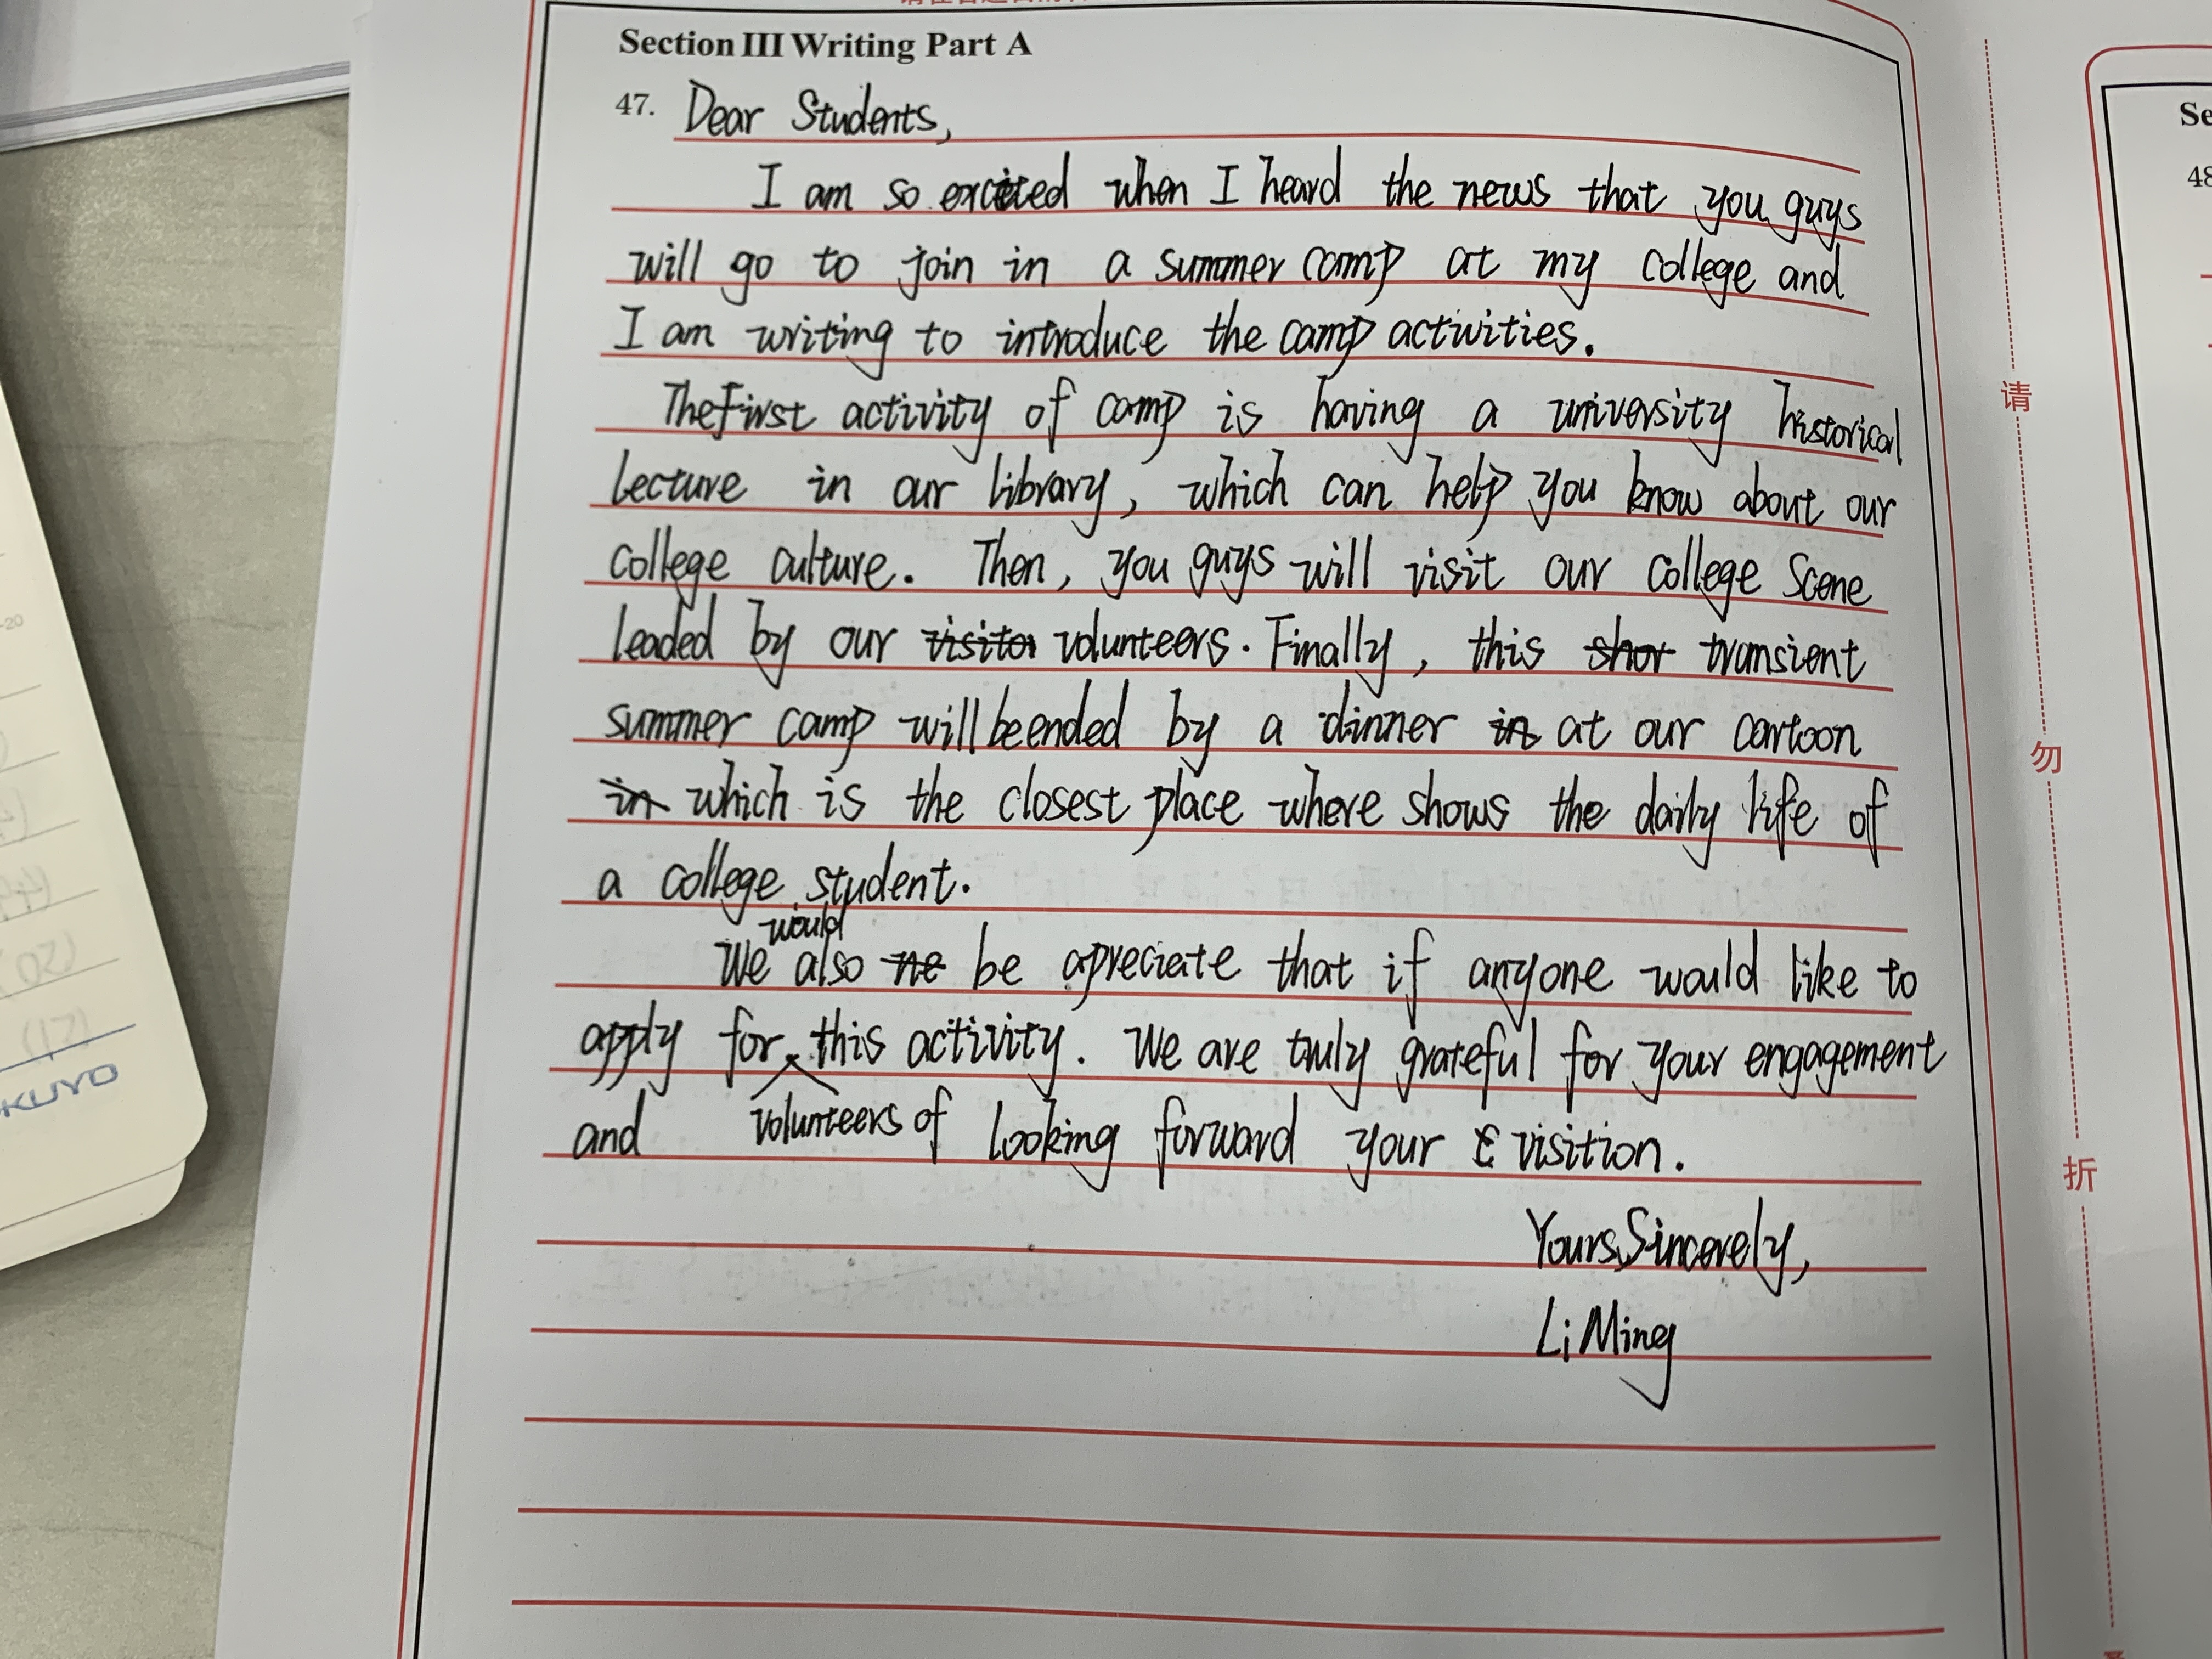 Section III Writing Part A
47. Dear Students,
I am so excited when I heard the news that you guys
will go to join in a summer camp at my college and
I am writing to introduce the camp activities.
The First activity of camp is having a university historical
lecture in our library, which can help you know about our
college culture. Then, you guys will visit our college scene
leaded by our visitor volunteers. Finally, this shor transient
summer camp will be ended by a dinner in at our cartoon
in which is the closest place where shows the daily life of
a college student.
would
We also ne be apreciate that if anyone would like to
apply for this activity. We are truly grateful for your engagement
and volunteers of looking forward your visition.
Yours Sincerely,
Li Ming
请
勿
折
Se
48
-20
(20)
(21)
KUYO